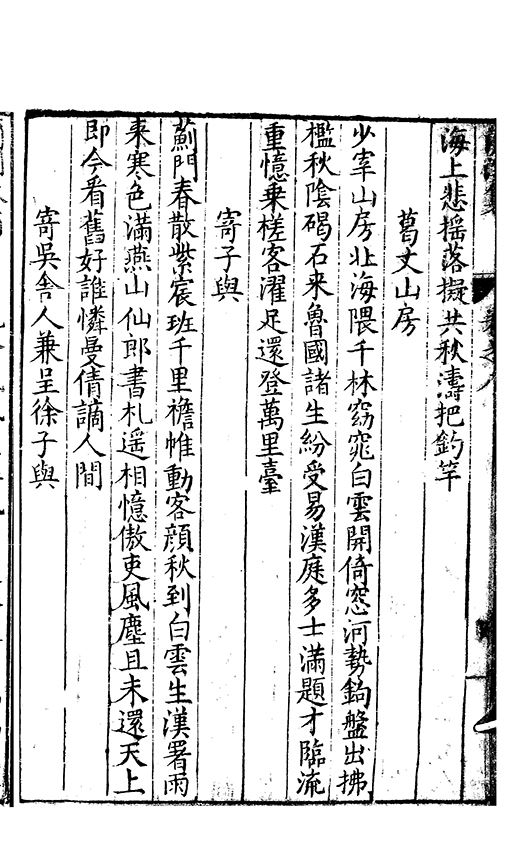 海上悲搖落擬共秋濤把釣竿
葛丈山房
少宰山房北海隈千林窈窕白雲開倚窓河勢鉤盤出拂
檻秋陰碣石来魯國諸生紛受易漢庭多士滿題才臨流
重憶乗槎客濯足還登萬里臺
寄子與
薊門春散紫宸班千里襜帷動客顔秋到白雲生漢署雨
来寒色滿燕山仙郎書札遥相憶傲吏風塵且未還天上
即今看舊好誰憐曼倩謫人間
寄吳舍人兼呈徐子與